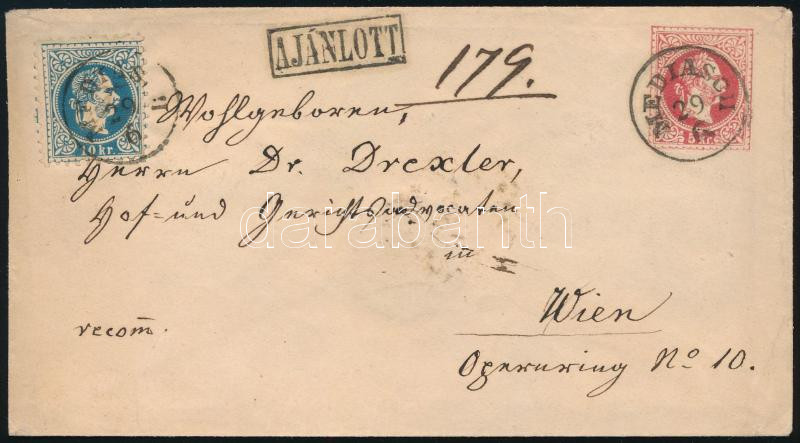 AJÁNLOTT
179.
10 kr.
MEDIASCH
29
Wohlgeboren,
Herrn Dr. Drexler,
Hof- und Gerichtsadvocaten
in
Wien
recom̅.
Opernring No 10.
darabanth